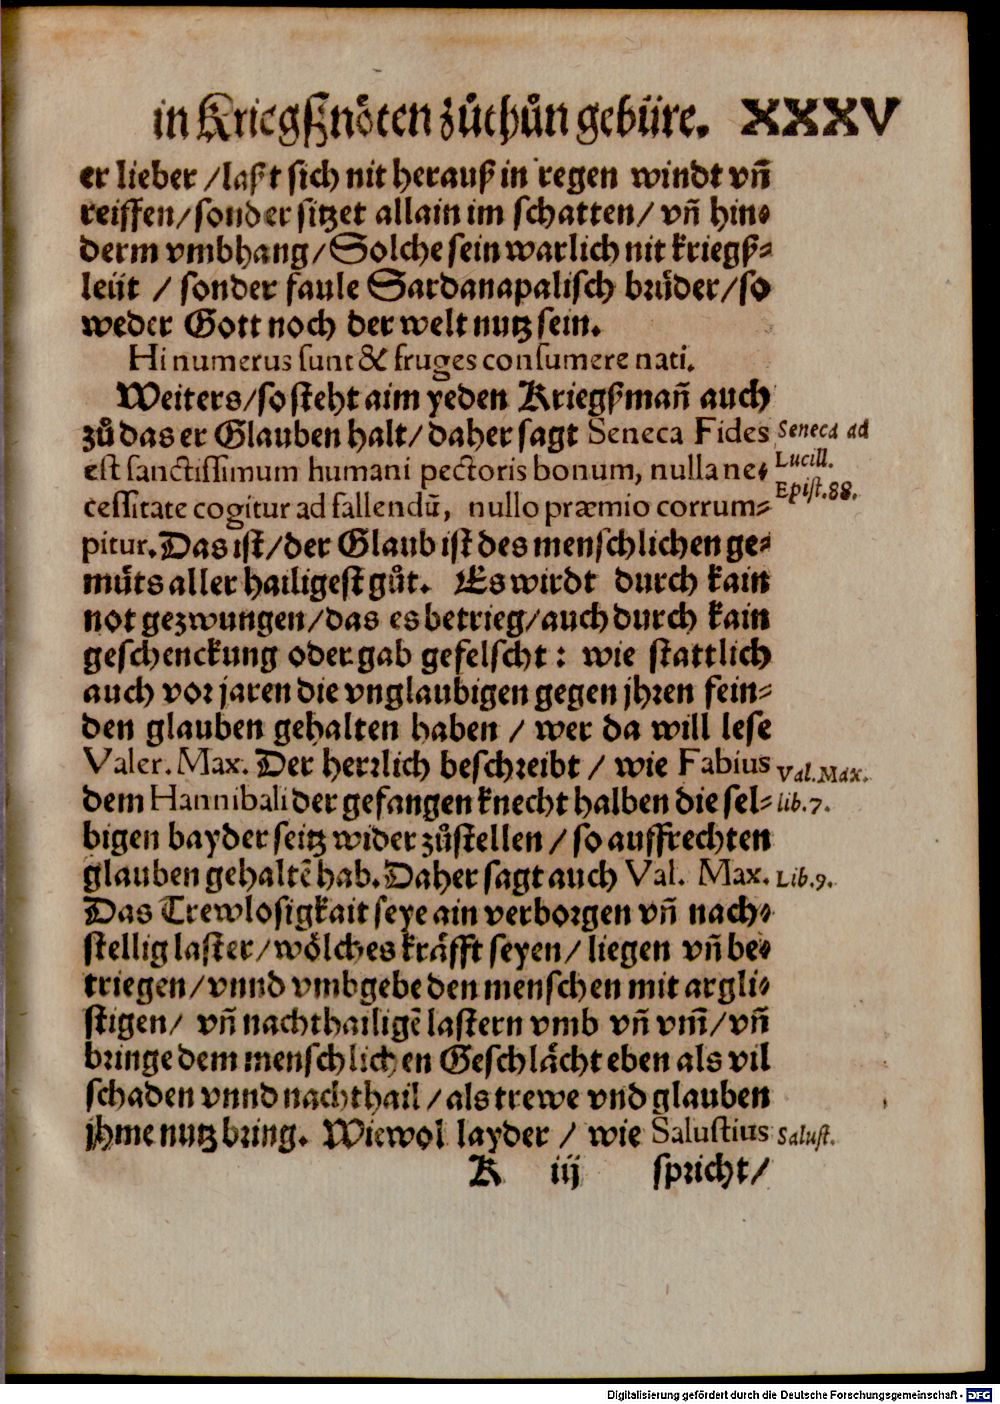 in Kriegßnöten zůthůn gebüre. XXXV
er lieber /laßt sich nit herauß in regen windt vñ
reiffen/sonder sitzet allain im schatten/ vñ hin-
derm vmbhang/Solche sein warlich nit kriegß-
leüt / sonder faule Sardanapalisch brüder/so
weder Gott noch der welt nutz sein.
Hi numerus sunt & fruges consumere nati.
Weiters/so steht aim yeden Kriegßmañ auch
zů das er Glauben halt/daher sagt Seneca Fides
Seneca ad
est sanctissimum humani pectoris bonum, nulla ne-
Lucill.
Epist.88.
cessitate cogitur ad fallendū, nullo præmio corrum-
pitur. Das ist/der Glaub ist des menschlichen ge-
müts aller hailigest gůt. Es wirdt durch kain
not gezwungen/das es betrieg/auch durch kain
geschenckung oder gab gefelscht: wie stattlich
auch vor jaren die vnglaubigen gegen jhren fein-
den glauben gehalten haben / wer da will lese
Valer. Max. Der herrlich beschreibt / wie Fabius
Val.Max.
dem Hannibali der gefangen knecht halben die sel-
lib.7.
bigen bayder seitz wider zůstellen / so auffrechten
glauben gehaltē hab. Daher sagt auch Val. Max.
Lib.9.
Das Trewlosigkait seye ain verborgen vñ nach-
stellig laster/wölches kräfft seyen/ liegen vñ be-
triegen/vnnd vmbgebe den menschen mit argli-
stigen/ vñ nachthailigē lastern vmb vñ vm̄/vñ
bringe dem menschlichen Geschlächt eben als vil
schaden vnnd nachthail / als trewe vnd glauben
jhme nutz bring. Wiewol layder / wie Salustius
Salust.
K iij spricht/
Digitalisierung gefördert durch die Deutsche Forschungsgemeinschaft - DFG